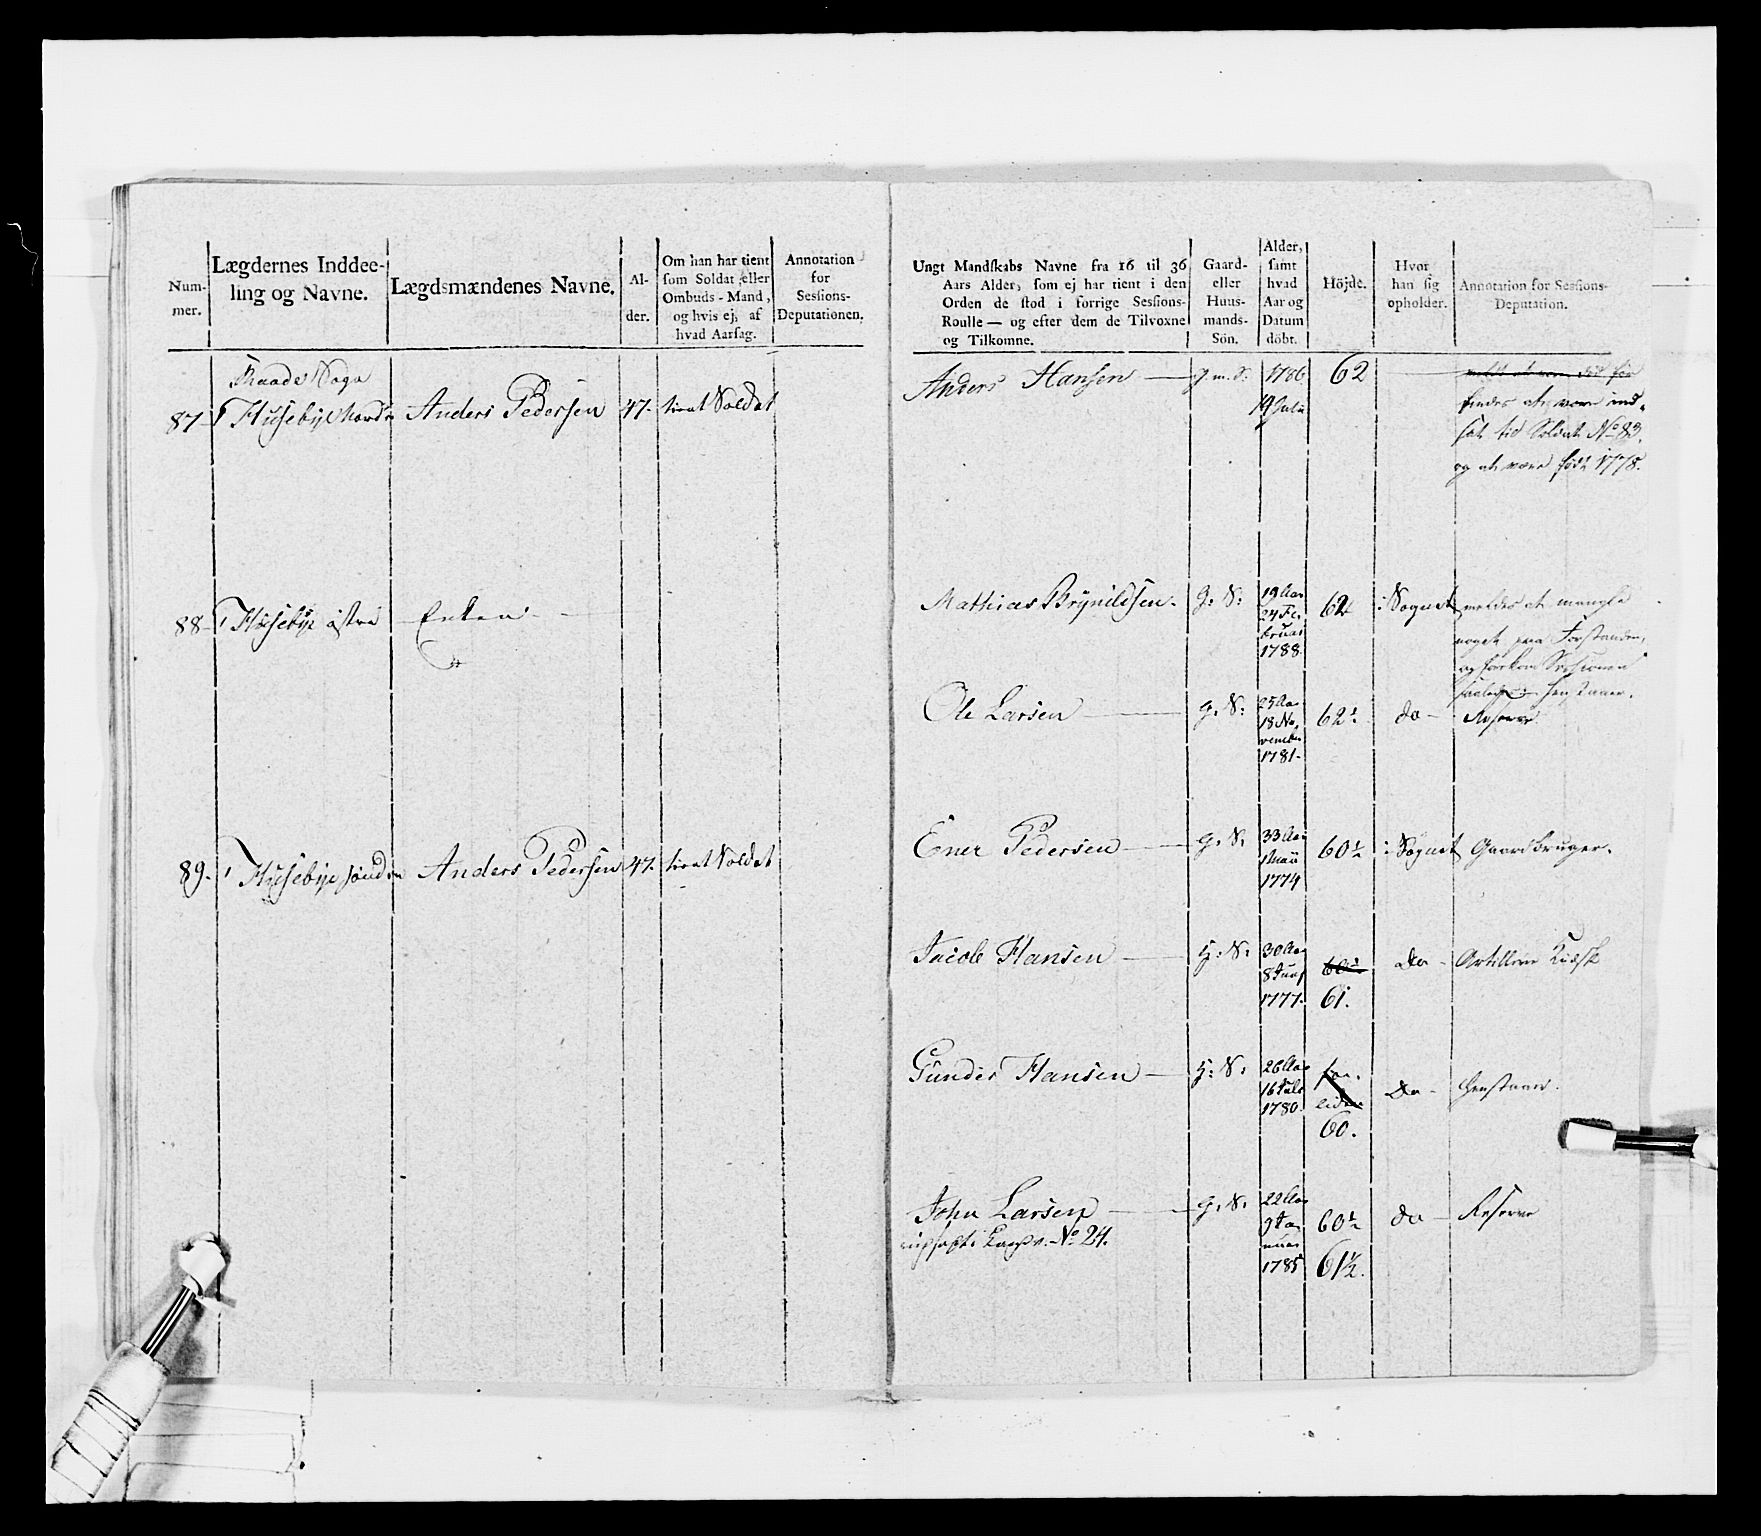 Num-
mer.
Lægdernes Inddee-
ling og Navne.
Lægdsmændenes Navne.
Al-
der.
Om han har tient
som Soldat eller
Ombuds-Mand,
og hvis ej, af
hvad Aarsag.
Annotation
for
Sessions-
Deputationen.
Raade Sogn
87 Husebye Nordre Anders Pedersen 47. tient Soldat
88 Husebye østre Enken
89. Husebye søndre Anders Pedersen 47. tient Soldat
Ungt Mandskabs Navne fra 16 til 36
Aars Alder, som ej har tient i den
Orden de stod i forrige Sessions-
Roulle — og efter dem de Tilvoxne
og Tilkomne.
Gaard-
eller
Huus-
mands-
Sön.
Alder,
samt
hvad
Aar og
Datum
döbt.
Höjde.
Hvor
han sig
opholder.
Annotation for Sessions-
Deputation.
Anders Hansen — g. m. S. 1786 62
19 Julii
findes at være ind-
sat til Soldat No 83.
og at være født 1778.
Mathias Brynildsen. G: S: 19 Aar
24 Fe-
bruar
1788.
62 i Sognet
meldes at mangle
noget paa Forstanden,
og forekom Sessionen
saaledes henstaaer.
Ole Larsen — G. S: 25 Aar
18 No-
vember
1781.
62½ do — Reserve
Ener Pedersen — G. S. 33 Aar
1 Maii
1774
60½ i Sognet Gaardbruger.
Jacob Hansen — H: S: 30 Aar
8 Junj
1777.
60½
61.
Do — Artillerie Kudsk
Gunder Hansen — H: S: 26 Aar
16 Julii
1780.
for
liden
60.
Do — henstaaer.
John Larsen — G. S. 22 Aar
9 Ja-
nuar
1785
60½
61½.
do — Reserve
No 24.